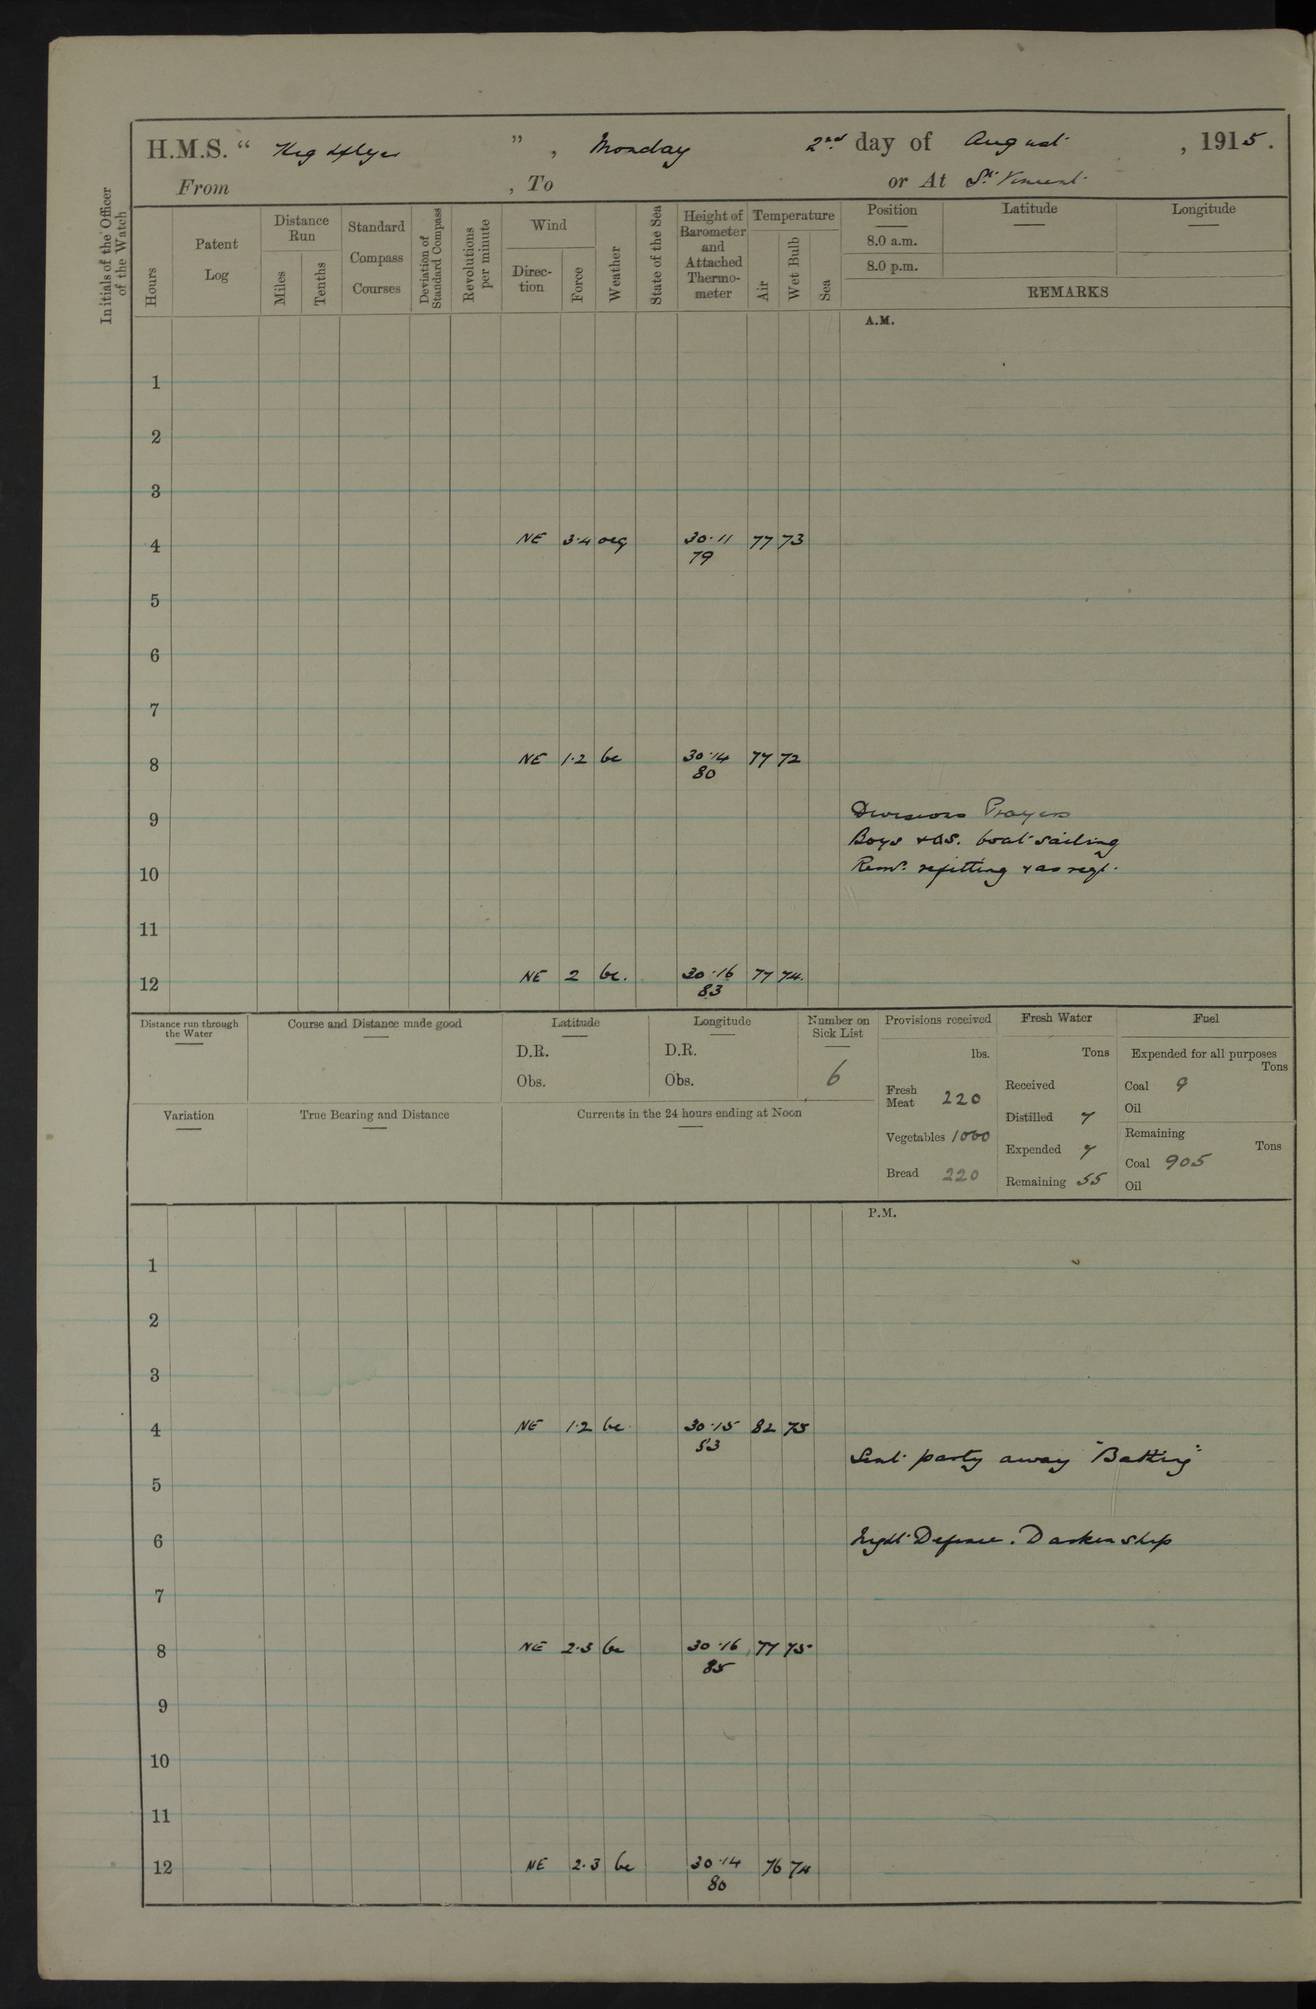 H.M.S. " Highflyer ", Monday 2nd day of August, 1915.
From , To or At St. Vincent.
Initials of the Officer of the Watch
Hours
Patent Log
Distance Run
Miles
Tenths
Standard Compass Courses
Deviation of Standard Compass
Revolutions per minute
Wind
Direction
Force
Weather
State of the Sea
Height of Barometer and Attached Thermometer
Temperature
Air
Wet Bulb
Sea
Position Latitude Longitude
8.0 a.m.
8.0 p.m.
REMARKS
A.M.
1
2
3
4 NE 3.4 ocq 30.11 77 73
79
5
6
7
8 NE 1.2 bc 30.14 77 72
80
9 Divisions Prayers
Boys & OS. boat sailing
10 Remr. refitting & as reqd.
11
12 NE 2 bc. 30.16 77 74.
83
Distance run through the Water
Course and Distance made good
Latitude
D.R.
Obs.
Longitude
D.R.
Obs.
Number on Sick List
6
Provisions received
lbs.
Fresh Meat 220
Vegetables 1000
Bread 220
Fresh Water
Tons
Received
Distilled 7
Expended 7
Remaining 55
Fuel
Expended for all purposes
Tons
Coal 9
Oil
Remaining
Tons
Coal 905
Oil
Variation
True Bearing and Distance
Currents in the 24 hours ending at Noon
P.M.
1
2
3
4 NE 1.2 bc 30.15 82 75
83
Sent party away "Bathing"
5
6 Night Defence. Darken ship
7
8 NE 2.3 bc 30.16 77 75
85
9
10
11
12 NE 2.3 bc 30.14 76 74
80